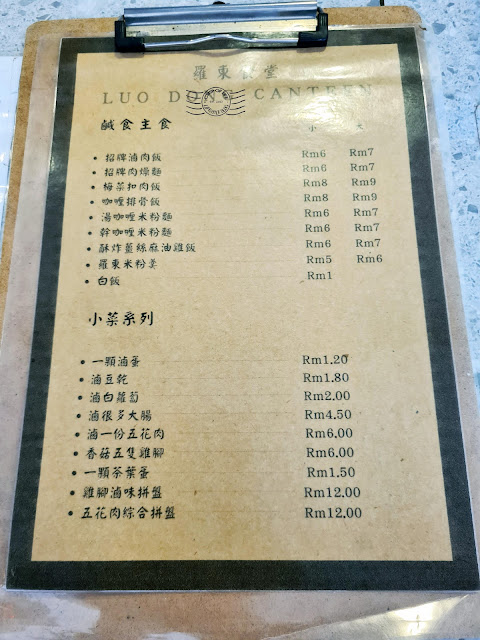 羅東食堂
LUO DONG CANTEEN
鹹食主食 小 大
• 招牌滷肉飯 Rm6 Rm7
• 招牌肉燥麵 Rm6 Rm7
• 梅菜扣肉飯 Rm8 Rm9
• 咖喱排骨飯 Rm8 Rm9
• 湯咖喱米粉麵 Rm6 Rm7
• 幹咖喱米粉麵 Rm6 Rm7
• 酥炸薑絲麻油雞飯 Rm6 Rm7
• 羅東米粉羹 Rm5 Rm6
• 白飯 Rm1
小菜系列
• 一顆滷蛋 Rm1.20
• 滷豆乾 Rm1.80
• 滷白蘿蔔 Rm2.00
• 滷很多大腸 Rm4.50
• 滷一份五花肉 Rm6.00
• 香菇五隻雞腳 Rm6.00
• 一顆茶葉蛋 Rm1.50
• 雞腳滷味拼盤 Rm12.00
• 五花肉綜合拼盤 Rm12.00